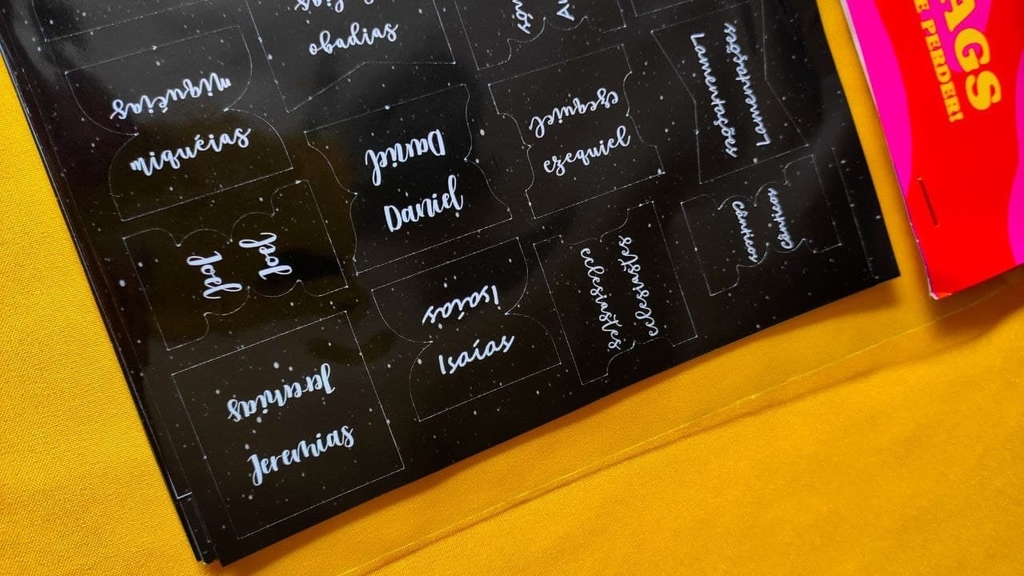 obadias
miquéias
miquéias
Daniel
Daniel
ezequiel
ezequiel
Lamentações
Lamentações
Joel
Joel
Isaías
Isaías
eclesiastes
eclesiastes
Cânticos
Jeremias
Jeremias
AGS
E PERDER!